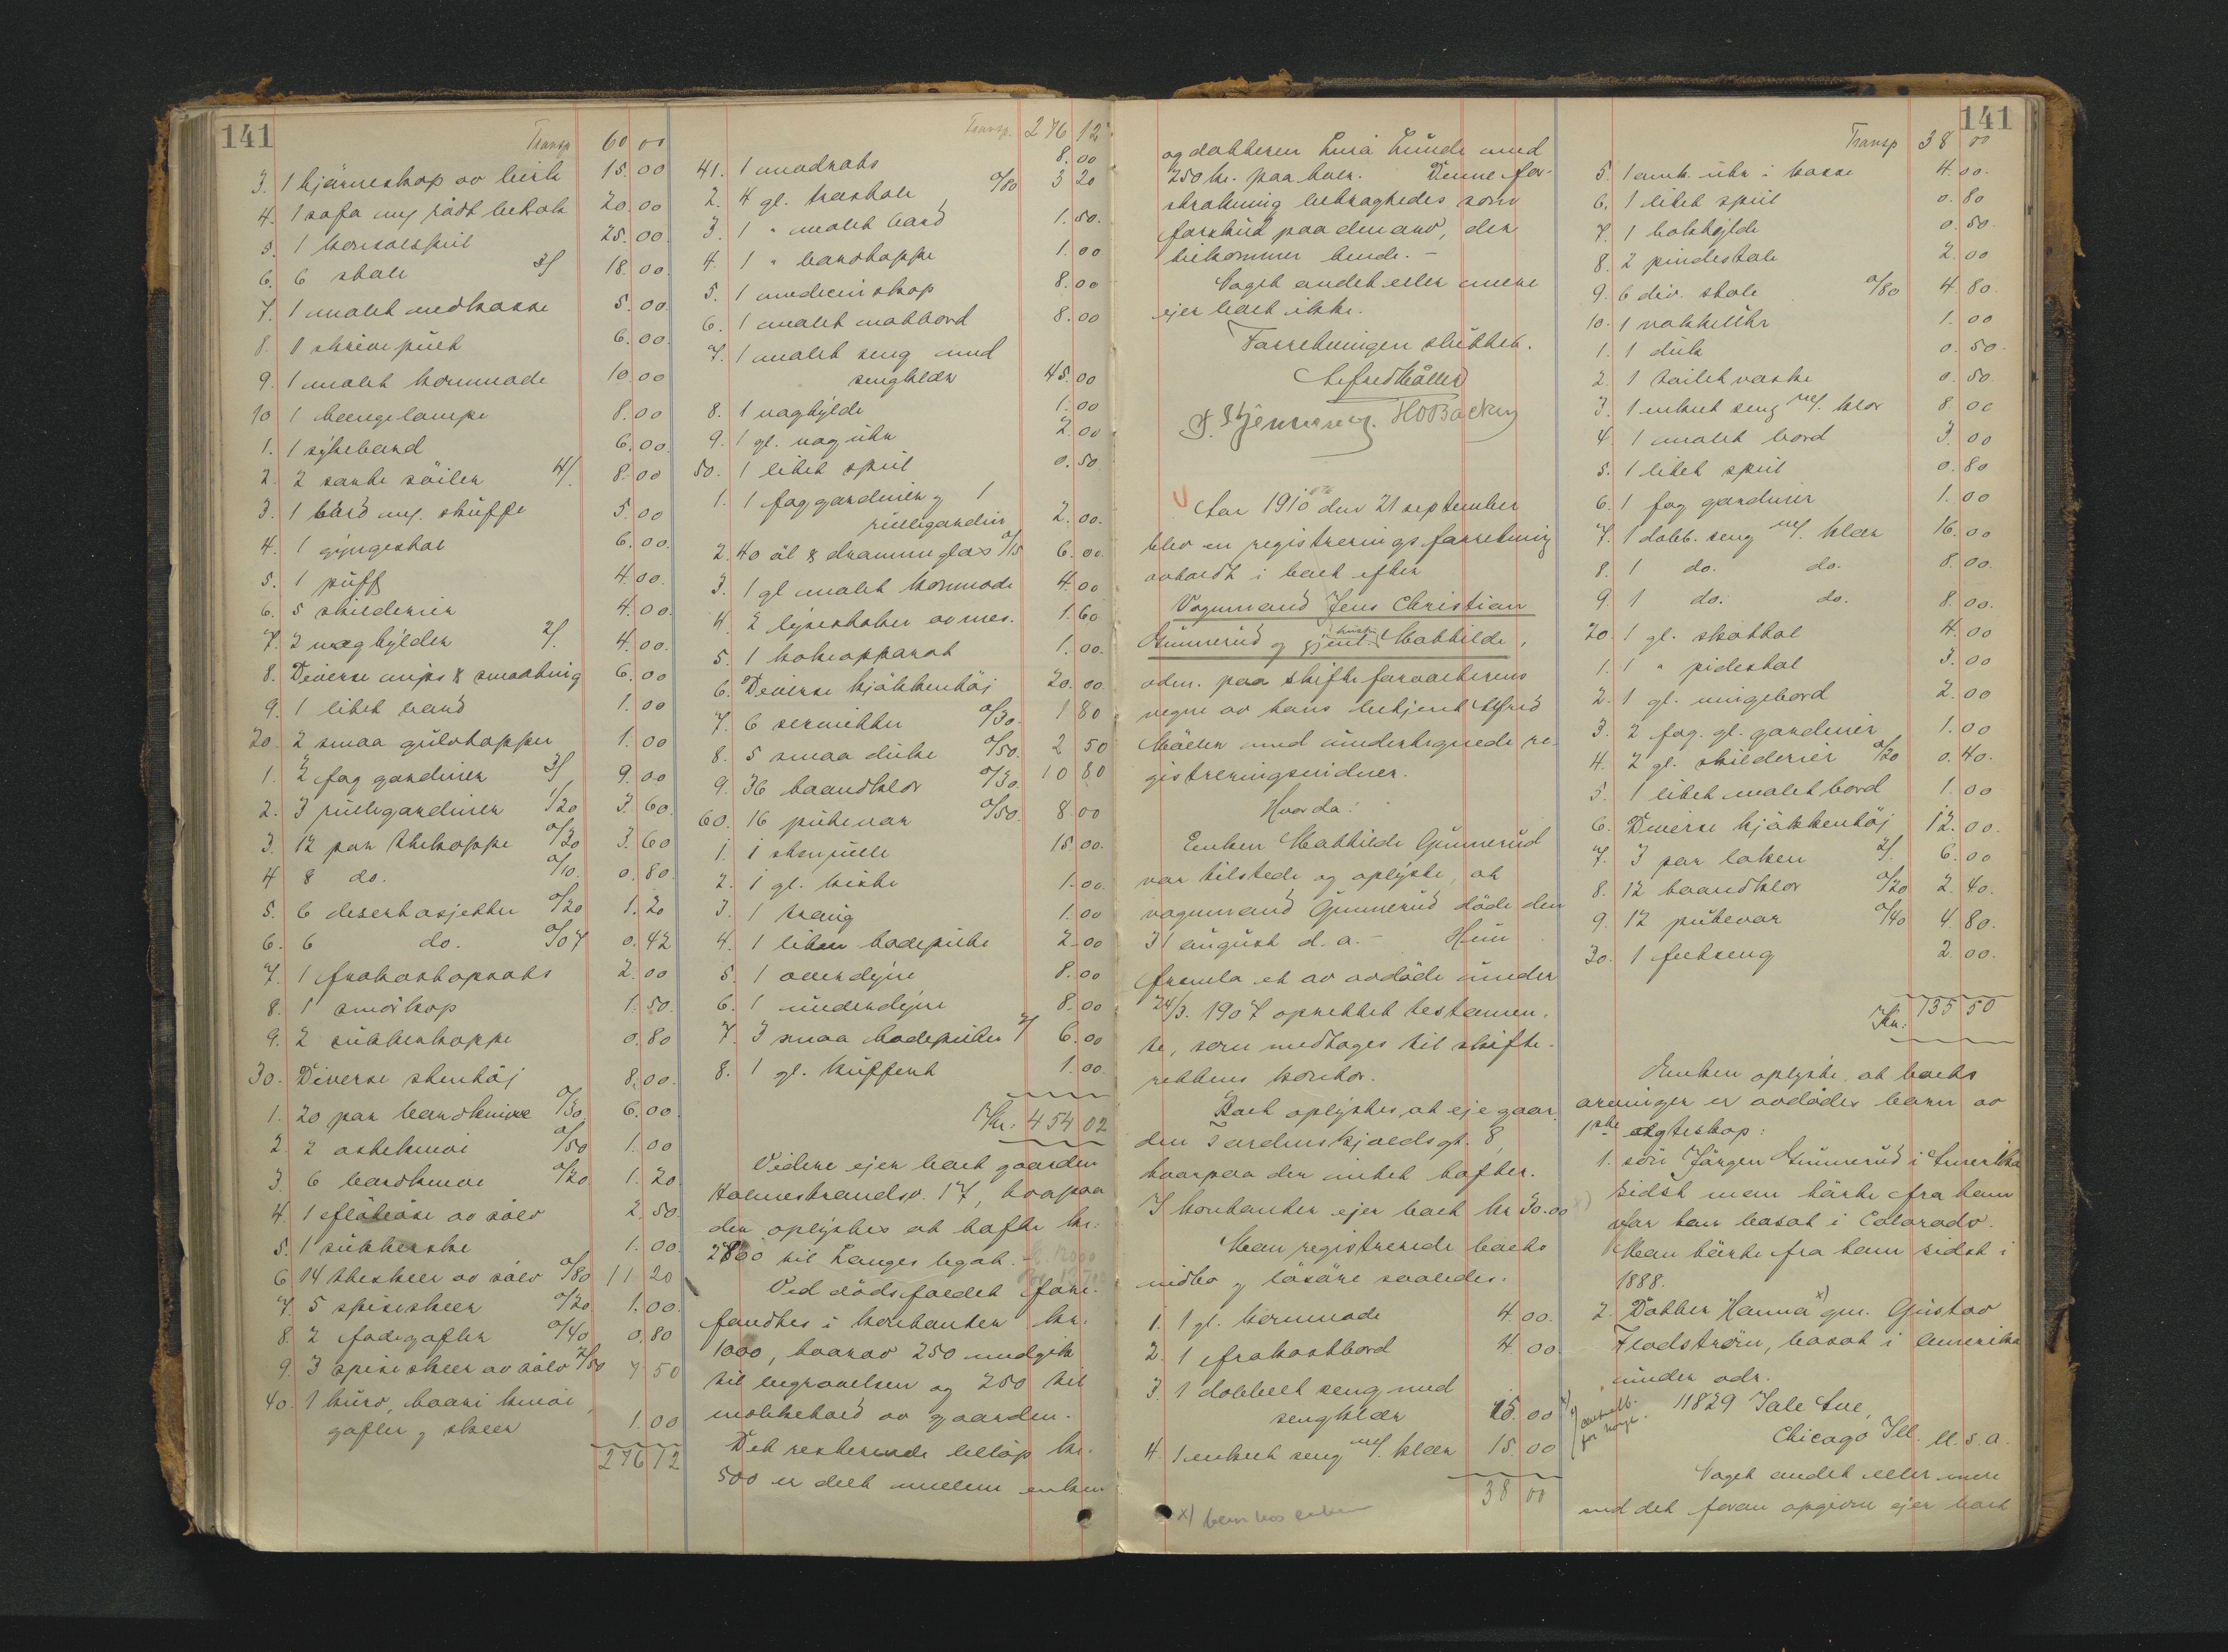 141
Transp 60 00
3. 1 hjørneskap av birk 15.00
4. 1 sofa m/ rødt betræk 20.00
5. 1 konsolspeil 25.00
6. 6 stole 3/ 18.00
7. 1 malet vedkasse 5.00
8. 1 skrivepult 6.00
9. 1 malet kommode 10.00
10 1 hængelampe 8.00
1. 1 sybord 6.00
2. 2 sorte søiler 4/. 8.00
3. 1 bord m/. skuffe 5.00
4. 1 gyngestol 6.00
5. 1 puff 4.00
6. 5 skilderier 4.00
7. 2 væghylder 2/. 4.00
8. Diverse nips & smaating 6.00
9. 1 litet bord 1.00
20. 2 smaa gulvtepper 1.00
1. 3 fag gardiner 3/ 9.00
2. 3 rullegardiner 1/20 3.60
3. 12 par thekopper 0/30 3.60
4 8 do. 0/10. 0.80
5. 6 desertasjetter 0/20 1.20
6. 6 do. 0/07 0.42
7. 1 frokostopsats 2.00
8. 1 smørkop 1.50
9. 2 sukkerkopper 0.80
30. Diverse stentøj 8.00
1. 20 par bordkniver 0/30. 6.00
2. 2 ostekniver 0/50 1.00
3. 6 bordkniver 0/20 1.20
4. 1 fløteøse av sølv 2.50
5. 1 sukkerske 1.00
6 14 theskeer av sølv 0/80 11 20
7. 5 spiseskeer 0/20 1.00
8. 2 fadegafler 0/40 0.80
9. 3 spiseskeer av sølv 2/50 7 50
40. 1 kurv, hvori kniver
gafler & skeer 1.00
276 12
Transp. 276 12
41. 1 madrats 8.00
2. 4 gl. træstole 0/80 3 20
3. 1 " malet bord 1.50
4. 1 " bordteppe 1.00
5. 1 medicinskap 8.00
6. 1 malet natbord 8.00
7. 1 malet seng med
sengklær 45.00
8. 1 væghylde 1.00
9. 1 gl. væguhr 2.00
50. 1 litet speil 0.50
1. 1 fag gardiner & 1
rullegardin 2.00
2. 40 øl & dramme glas 0/15 6.00
3. 1 gl malet kommode 4.00
4. 2 lysestaker av mes. 1.60
5. 1 kokeapparat 1.00
6. Diverse kjøkkentøj 20.00
7. 6 servietter 0/30. 1 80
8. 5 smaa duke 0/50. 2 50
9. 36 haandklær 0/30. 10 80
60. 16 putevar 0/50. 8.00
1. 1 stenrulle 15.00
2. 1 gl. kiste 1.00
3. 1 traug 1.00
4. 1 liten hodepute 2.00
5. 1 overdyne 8.00
6. 1 underdyne 8.00
7. 3 smaa hodeputer 2/ 6.00
8. 1 gl. kuffert 1.00
Kr: 454 02
Videre ejer boet gaarden
Holmestrandsv. 17, hvorpaa
der oplystes at hefte kr.
2800 til Langes legat.
Ved dødsfaldet fore-
fandtes i kontanter kr.
1000, hvorav 250 medgik
til begravelsen og 250 til
vedlikehold av gaarden.
Det resterende beløp kr.
500 er delt mellem enken
141
og datteren Luia Lunde med
250 kr. paa hver. Denne for-
strækning betragtedes som
forskud paa den arv, der
tilkommer hende. –
Noget andet eller mere
ejer boet ikke.
Forretningen sluttet.
Alfred Møller
Aar 1910 den 21 september
blev en registreringsforretning
avholdt i boet efter
Vognmand Jens Christian
Gunnerud og hustru Mathilde,
adm. paa skifteforvalterens
vegne av hans betjent Alfred
Møller med undertegnede re-
gistreringsvidner.
Hvorda:
Enken Mathilde Gunnerud
var tilstede og oplyste, at
vognmand Gunnerud døde den
31 august d. a. – Hun
fremla et av avdøde under
24/3. 1907 oprettet testamen-
te, som medtages til skifte-
rettens kontor.
Boet oplystes at eje gaar
den Tordenskjoldsgt. 8,
hvorpaa der intet hefter.
I kontanter ejer boet kr 30.00
Man registrerede boets
indbo & løsøre saaledes:
1. 1 gl. kommode 4.00.
2. 1 frokostbord 4.00
3. 1 dobbelt seng med
sengklær 15.00 x)
4. 1 enkelt seng m/. klær 15.00
38 00
x) hos enken
141
Transp 38 00
5. 1 amk. uhr i kasse 4.00.
6. 1 litet speil 0.80
7. 1 bokhylde 0.50
8. 2 pindestole 2.00
9. 6 div. stole 0/80 4.80.
10. 1 vækkeuhr 1.00
1. 1 duk 0.50
2. 1 toiletvaske 0.50
3. 1 enkelt seng m/. klær 8.00
4. 1 malet bord 3.00
5. 1 litet speil 0.80
6. 1 fag gardiner 1.00
7. 1 dobb. seng m/. klær 16.00
8. 1 do. do. 8.00.
9. 1 do. do. 8.00.
20. 1 gl. skattol 4.00
1. 1 " pidestal 3.00
2. 1 gl. vingebord 2.00
3. 2 fag. gl. gardiner 1.00
4. 2 gl. skilderier 0/20 0.40.
5. 1 litet malet bord 1.00
6. Diverse kjøkkentøj 12.00.
7. 3 par laken 2/. 6.00
8. 12 haandklær 0/20 2.40.
9. 12 putevar 0/40 4.80.
30. 1 feltseng 2.00.
Kr: 135 50
Enken oplyste, at boets
arvinger er avdødes barn av
1ste egteskap:
1. søn Jørgen Gunnerud i Amerika
Sidst man hørte fra ham
var han bosat i Colorado.
Man hørte fra ham sidst i
1888.
2. Datter Hanna x) gm. Gustav
Flodstrøm, bosat i Amerika
under adr.
11829 Yale Ave,
Chicago Ill. U.S.A.
Noget andet eller mere
end det foran opgivne ejer boet